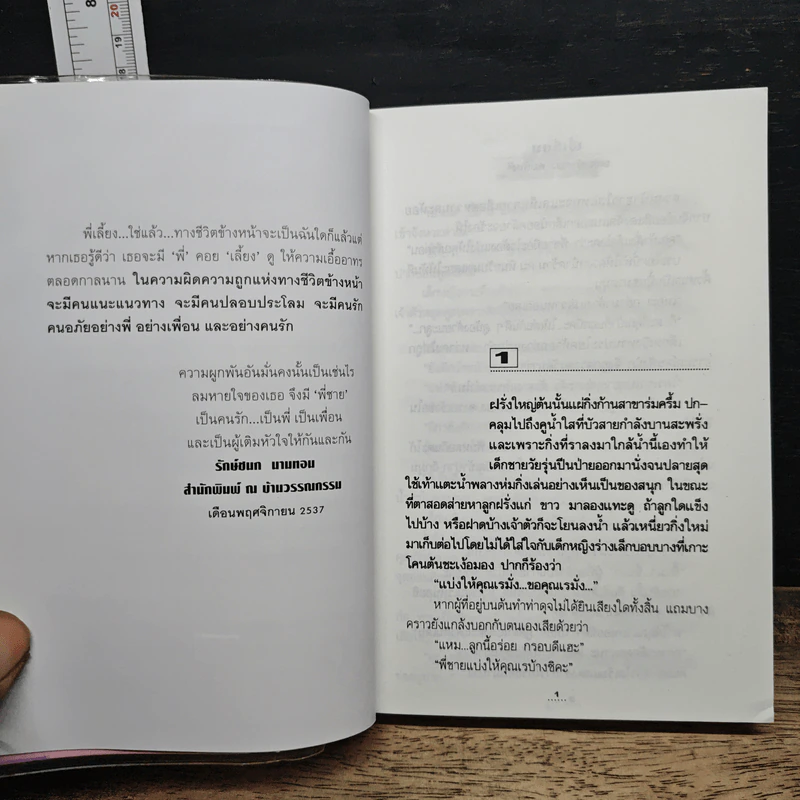 8
20
19
18
พี่เลี้ยง...ใช่แล้ว...ทางชีวิตข้างหน้าจะเป็นฉันใดก็แล้วแต่
หากเธอรู้ดีว่า เธอจะมี ‘พี่’ คอย ‘เลี้ยง’ ดู ให้ความเอื้ออาทร
ตลอดกาลนาน ในความผิดความถูกแห่งทางชีวิตข้างหน้า
จะมีคนแนะแนวทาง จะมีคนปลอบประโลม จะมีคนรัก
คนอภัยอย่างพี่ อย่างเพื่อน และอย่างคนรัก
ความผูกพันอันมั่นคงนั้นเป็นเช่นไร
ลมหายใจของเธอ จึงมี ‘พี่ชาย’
เป็นคนรัก...เป็นพี่ เป็นเพื่อน
และเป็นผู้เติมหัวใจให้กันและกัน
รักษ์ชนก นามทอน
สำนักพิมพ์ ณ บ้านวรรณกรรม
เดือนพฤศจิกายน 2537
1
ฝรั่งใหญ่ต้นนั้นแผ่กิ่งก้านสาขาร่มครึ้ม ปก–
คลุมไปถึงคูน้ำใสที่บัวสายกำลังบานสะพรั่ง
และเพราะกิ่งที่ราลงมาใกล้น้ำนี้เองทำให้
เด็กชายวัยรุ่นปีนป่ายออกมานั่งจนปลายสุด
ใช้เท้าแตะน้ำพลางห่มกิ่งเล่นอย่างเห็นเป็นของสนุก ในขณะ
ที่ตาสอดส่ายหาลูกฝรั่งแก่ ขาว มาลองแทะดู ถ้าลูกใดแข็ง
ไปบ้าง หรือฝาดบ้างเจ้าตัวก็จะโยนลงน้ำ แล้วเหนี่ยวกิ่งใหม่
มาเก็บต่อไปโดยไม่ได้ใส่ใจกับเด็กหญิงร่างเล็กบอบบางที่เกาะ
โคนต้นชะเง้อมอง ปากก็ร้องว่า
“แบ่งให้คุณเรมั่ง...ขอคุณเรมั่ง...”
หากผู้ที่อยู่บนต้นทำท่าดุจไม่ได้ยินเสียงใดทั้งสิ้น แถมบาง
คราวยังแกล้งบอกกับตนเองเสียด้วยว่า
“แหม...ลูกนี้อร่อย กรอบดีแฮะ”
“พี่ชายแบ่งให้คุณเรบ้างซิคะ”
1